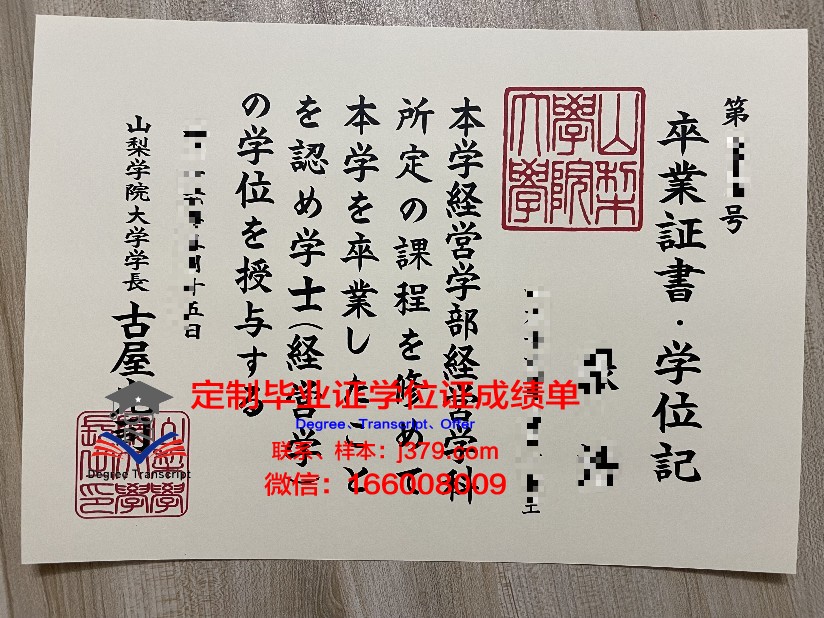 第
号
卒業証書・学位記
山梨
學院
大學
本学経営学部経営学科
所定の課程を修めて
本学を卒業したこと
を認め学士(経営学)
の学位を授与する
月十五日
山梨学院大学学長 古屋
定制毕业证学位证成绩单
Degree、Transcript、Offer
联系、样本：j379.com
微信：166008009
Degree Transcript